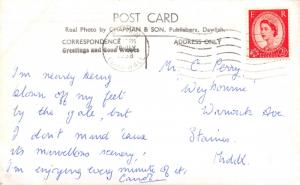 POST CARD
Real Photo by CHAPMAN & SON, Publishers, Dawlish.
CORRESPONDENCE
ADDRESS ONLY
Greetings and Good Wishes
I'm nearly being
blown off my feet
by the gale, but
I don't mind 'cause
its marvellous scenery,
I'm enjoying every minute of it.
Mr C. Perry,
Weybourne
Warwick Ave
Staines
Middx.